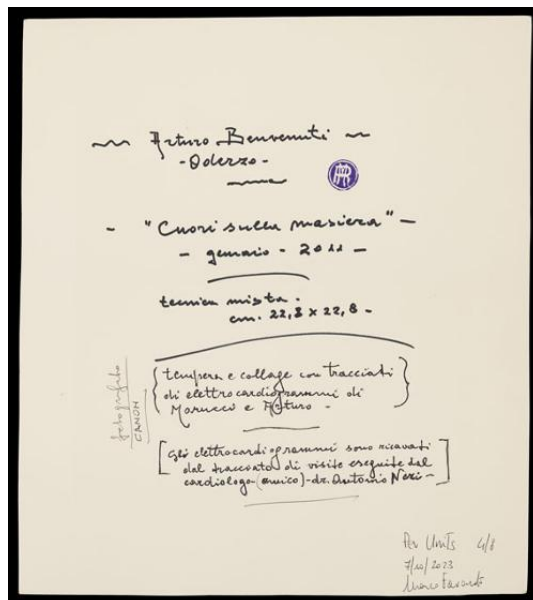 Arturo Benvenuti
- Oderzo -
- "Cuori sulla masiera" -
- gennaio - 2011 -
tecnica mista .
cm. 22,8 x 22,8 -
{ tempera e collage con tracciati
di elettrocardiogrammi di
Marucci e Arturo - }
fotografato
CANON
[ gli elettrocardiogrammi sono ricavati
dal tracciato di visite eseguite dal
cardiologo (amico) - dr. Antonio Neri - ]
Per Units 4/8
7/10/2023
Marco